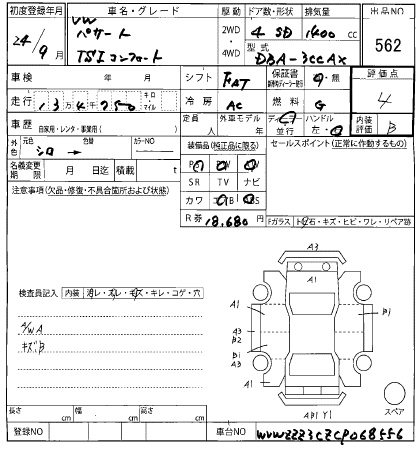 初度登録年月 車名・グレード 駆動 ドア数・形状 排気量 出品NO
24年/9月 VW パサート TSIコンフォート 2WD・4WD 4 SD 1400cc 562
型式 DBA-3CCAX
車検 年 月 シフト FAT 保証書 有・無 評価点 4
走行 13万4千750 キロ マイル 冷房 AC 燃料 G
車歴 自家用・レンタ・事業用( ) 定員 人 外車モデル 年 ディーラー 並行 ハンドル 左・右 内装評価 B
外色 元色 シロ → 色替 カラーNO 装備品(純正品に限る) セールスポイント(正常に動作するもの)
名義変更期限 月 日迄 積載 t
注意事項(欠品・修復・不具合箇所および状態)
SR TV ナビ
カワ
R券 18,680円 Fガラス トビ石・キズ・ヒビ・ワレ・リペア跡
A3
A1
検査員記入 内装 汚レ・スレ・キズ・キレ・コゲ・穴
A1 B1
A/W A A3
キズ B B2
B1 A1
A3
A1
AB1 Y1 スペア
長さ cm 幅 cm 高さ cm
登録NO 車台NO WVWZZZ3CZCP068556